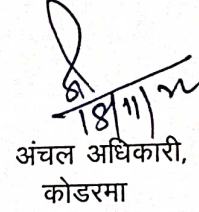 18/11/22
अंचल अधिकारी,
कोडरमा